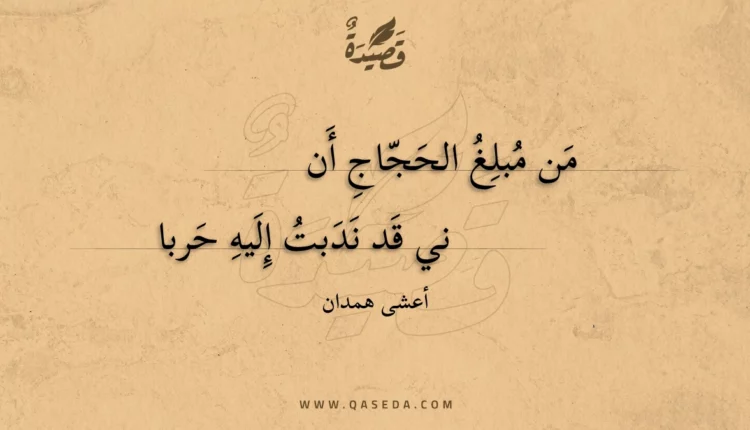 قَصِيْدَةٌ
مَن مُبلِغُ الحَجّاجِ أَن
ني قَد نَدَبتُ إِلَيهِ حَربا
أعشى همدان
WWW.QASEDA.COM